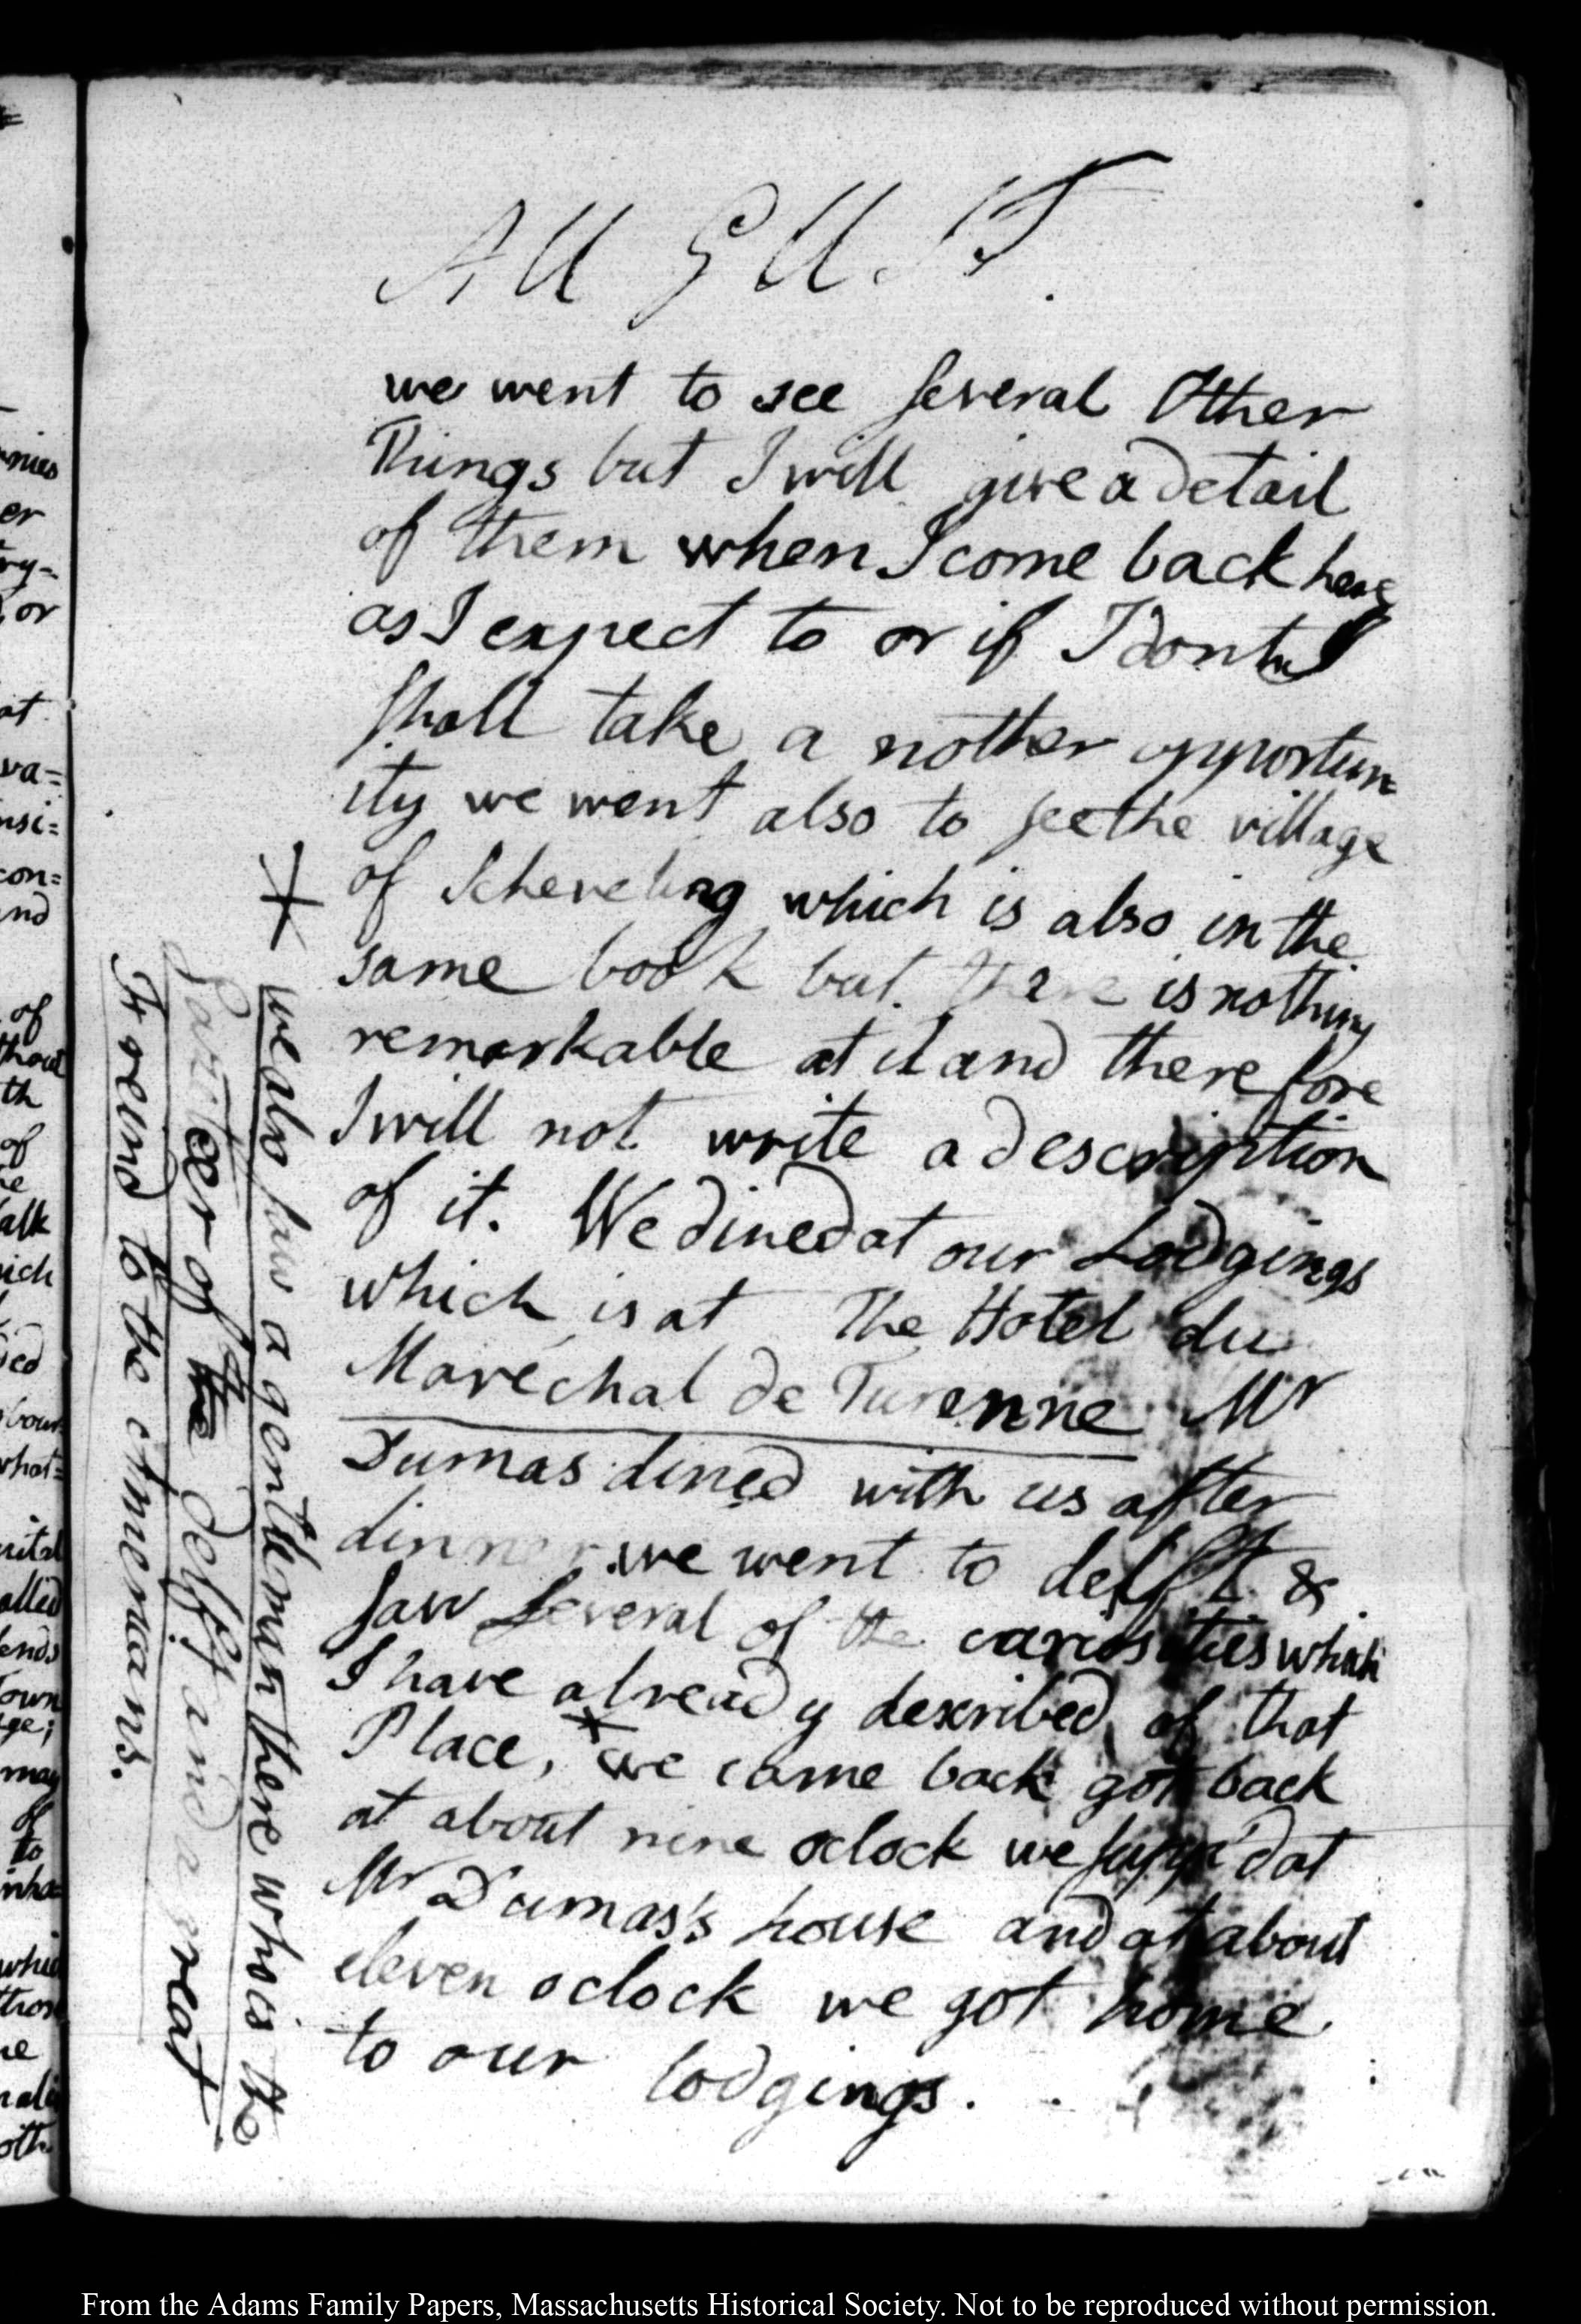 AUGUST.
we went to see several Other
Things but I will give a detail
of them when I come back here
as I expect to or if I dont I
shall take a nother opportun
ity we went also to see the village
of Scheveling which is also in the
same book but there is nothing
remarkable at it and there fore
I will not write a description
of it. We dined at our Lodgings
which is at The Hotel du
Maréchal de Turenne Mr
Dumas dined with us after
dinner we went to delft &
saw several of the curiosities which
I have already described of that
Place, * we came back got back
at about nine oclock we supp'd at
Mr Dumas's house and at about
eleven oclock we got home
to our lodgings.
* we also saw a gentleman there who is the
of the Delft and a great
Friend to the Americans.
nies
er
ry-
or
at
va=
nsi=
con=
and
of
thout
th
of
alk
hich
ed
bour
what=
alled
ends
Town
ge;
may
of
to
inha=
whi
oth
From the Adams Family Papers, Massachusetts Historical Society. Not to be reproduced without permission.